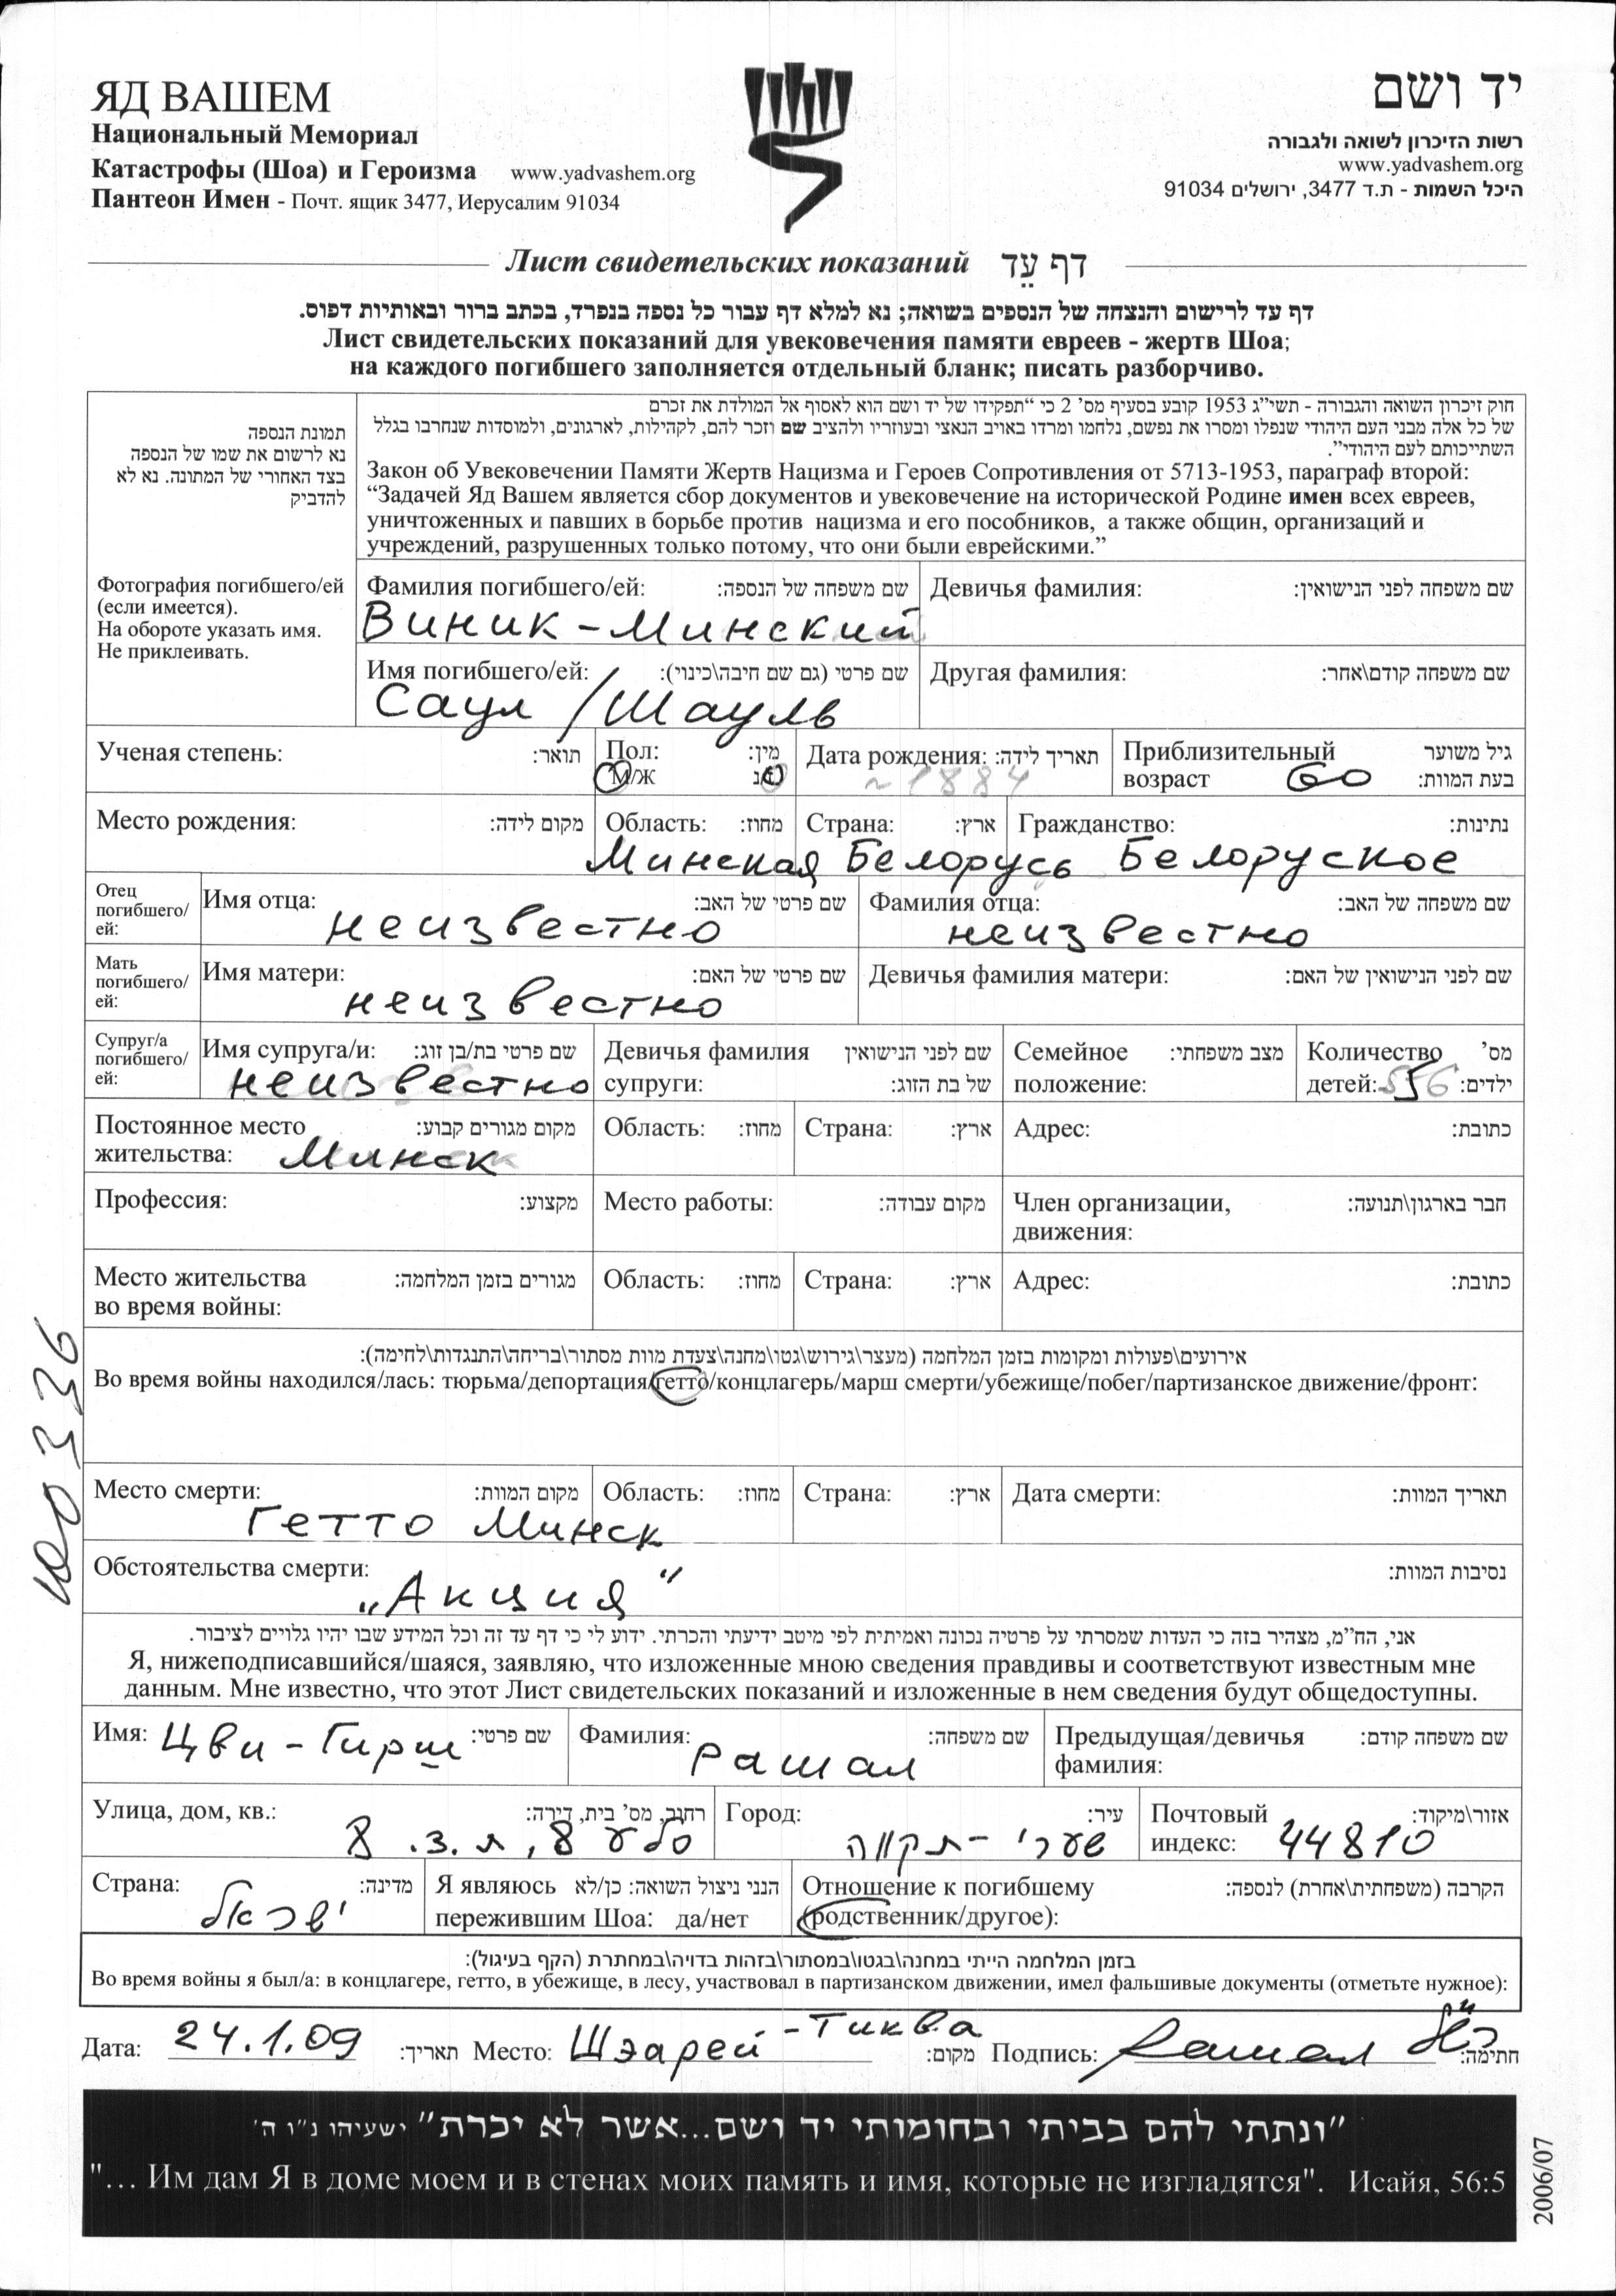 ЯД ВАШЕМ
Национальный Мемориал
Катастрофы (Шоа) и Героизма www.yadvashem.org
Пантеон Имен - Почт. ящик 3477, Иерусалим 91034
יד ושם
רשות הזיכרון לשואה ולגבורה
www.yadvashem.org
היכל השמות - ת.ד 3477, ירושלים 91034
Лист свидетельских показаний דף עֵד
דף עד לרישום והנצחה של הנספים בשואה; נא למלא דף עבור כל נספה בנפרד, בכתב ברור ובאותיות דפוס.
Лист свидетельских показаний для увековечения памяти евреев - жертв Шоа;
на каждого погибшего заполняется отдельный бланк; писать разборчиво.
תמונת הנספה
נא לרשום את שמו של הנספה
בצד האחורי של המתונה. נא לא
להדביק
Фотография погибшего/ей
(если имеется).
На обороте указать имя.
Не приклеивать.
חוק זיכרון השואה והגבורה - תשי"ג 1953 קובע בסעיף מס' 2 כי "תפקידו של יד ושם הוא לאסוף אל המולדת את זכרם
של כל אלה מבני העם היהודי שנפלו ומסרו את נפשם, נלחמו ומרדו באויב הנאצי ובעוזריו ולהציב שם וזכר להם, לקהילות, לארגונים, ולמוסדות שנחרבו בגלל
השתייכותם לעם היהודי".
Закон об Увековечении Памяти Жертв Нацизма и Героев Сопротивления от 5713-1953, параграф второй:
"Задачей Яд Вашем является сбор документов и увековечение на исторической Родине имен всех евреев,
уничтоженных и павших в борьбе против нацизма и его пособников, а также общин, организаций и
учреждений, разрушенных только потому, что они были еврейскими."
Фамилия погибшего/ей: שם משפחה של הנספה: Девичья фамилия: שם משפחה לפני הנישואין:
Виник-Минский
Имя погибшего/ей: שם פרטי (גם שם חיבה\כינוי): Другая фамилия: שם משפחה קודם\אחר:
Саул / Шауль
Ученая степень: תואר: Пол: מין: Дата рождения: תאריך לידה: Приблизительный גיל משוער
М/Ж ז\נ ~1884 возраст 60 בעת המוות:
Место рождения: מקום לידה: Область: מחוז: Страна: ארץ: Гражданство: נתינות:
Минская Белорусь Белоруское
Отец
погибшего/
ей:
Имя отца: שם פרטי של האב: Фамилия отца: שם משפחה של האב:
неизвестно неизвестно
Мать
погибшего/
ей:
Имя матери: שם פרטי של האם: Девичья фамилия матери: שם לפני הנישואין של האם:
неизвестно
Супруг/а
погибшего/
ей:
Имя супруга/и: שם פרטי בת/בן זוג: Девичья фамилия שם לפני הנישואין Семейное מצב משפחתי: Количество מס'
неизвестно супруги: של בת הזוג: положение: детей: ילדים:
Постоянное место מקום מגורים קבוע: Область: מחוז: Страна: ארץ: Адрес: כתובת:
жительства: Минск
Профессия: מקצוע: Место работы: מקום עבודה: Член организации, חבר בארגון\תנועה:
движения:
Место жительства מגורים בזמן המלחמה: Область: מחוז: Страна: ארץ: Адрес: כתובת:
во время войны:
אירועים\פעולות ומקומות בזמן המלחמה (מעצר\גירוש\גטו\מחנה\צעדת מוות מסתור\בריחה\התנגדות\לחימה):
Во время войны находился/лась: тюрьма/депортация/гетто/концлагерь/марш смерти/убежище/побег/партизанское движение/фронт:
100336
Место смерти: מקום המוות: Область: מחוז: Страна: ארץ: Дата смерти: תאריך המוות:
Гетто Минск
Обстоятельства смерти: נסיבות המוות:
„Акция"
אני, הח"מ, מצהיר בזה כי העדות שמסרתי על פרטיה נכונה ואמיתית לפי מיטב ידיעתי והכרתי. ידוע לי כי דף עד זה וכל המידע שבו יהיו גלויים לציבור.
Я, нижеподписавшийся/шаяся, заявляю, что изложенные мною сведения правдивы и соответствуют известным мне
данным. Мне известно, что этот Лист свидетельских показаний и изложенные в нем сведения будут общедоступны.
Имя: Цви-Гирш שם פרטי: Фамилия: שם משפחה: Предыдущая/девичья שם משפחה קודם:
Рашал фамилия:
Улица, дом, кв.: רחוב, מס' בית, דירה: Город: עיר: Почтовый אזור\מיקוד:
סלע 8, ת.ז. 8 שערי-תקווה индекс: 44810
Страна: מדינה: Я являюсь הנני ניצול השואה: כן/לא Отношение к погибшему הקרבה (משפחתית\אחרת) לנספה:
ישראל пережившим Шоа: да/нет (родственник/другое):
בזמן המלחמה הייתי במחנה\בגטו\במסתור\בזהות בדויה\במחתרת (הקף בעיגול):
Во время войны я был/а: в концлагере, гетто, в убежище, в лесу, участвовал в партизанском движении, имел фальшивые документы (отметьте нужное):
Дата: 24.1.09 תאריך: Место: Шэарей-Тиква מקום: Подпись: Рашал חתימה:
"ונתתי להם בביתי ובחומותי יד ושם...אשר לא יכרת" ישעיהו נ"ו ה'
"... Им дам Я в доме моем и в стенах моих память и имя, которые не изгладятся". Исайя, 56:5
2006/07